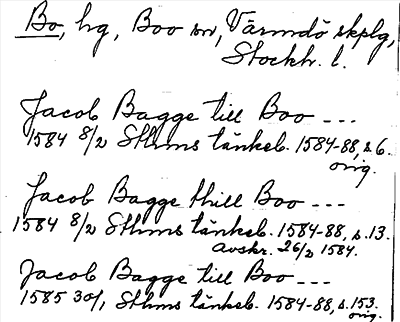 Bo, hg, Boo sn, Värmdö skplg,
Stockh. l.
Jacob Bagge till Boo ---
1584 8/2 Sthms tänkeb. 1584-88, s. 6.
orig.
Jacob Bagge thill Boo ---
1584 8/2 Sthms tänkeb. 1584-88, s. 13.
Avskr. 26/2 1584.
Jacob Bagge till Boo ---
1585 30/1 Sthms tänkeb. 1584-88, s. 153.
orig.